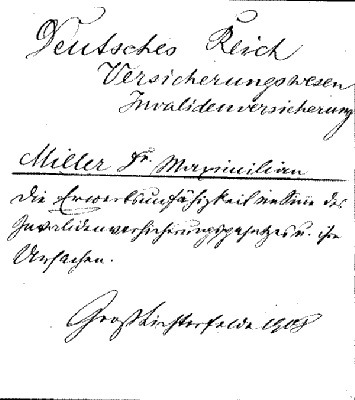 Deutsches Reich
Versicherungswesen
Invalidenversicherung
Miller Dr. Maximilian
Die Erwerbsunfähigkeit im Sinne des
Invalidenversicherungsgesetzes u. ihre
Ursachen.
Großlichterfelde 1908